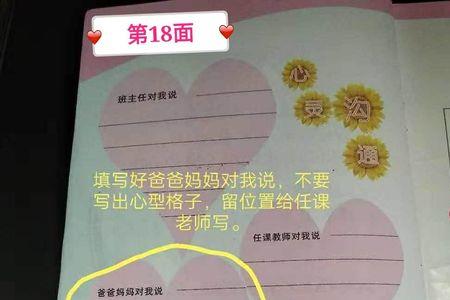 第18面
班主任对我说
心
灵
沟
通
填写好爸爸妈妈对我说，不要
写出心型格子，留位置给任课
老师写。
任课教师对我说
爸爸妈妈对我说